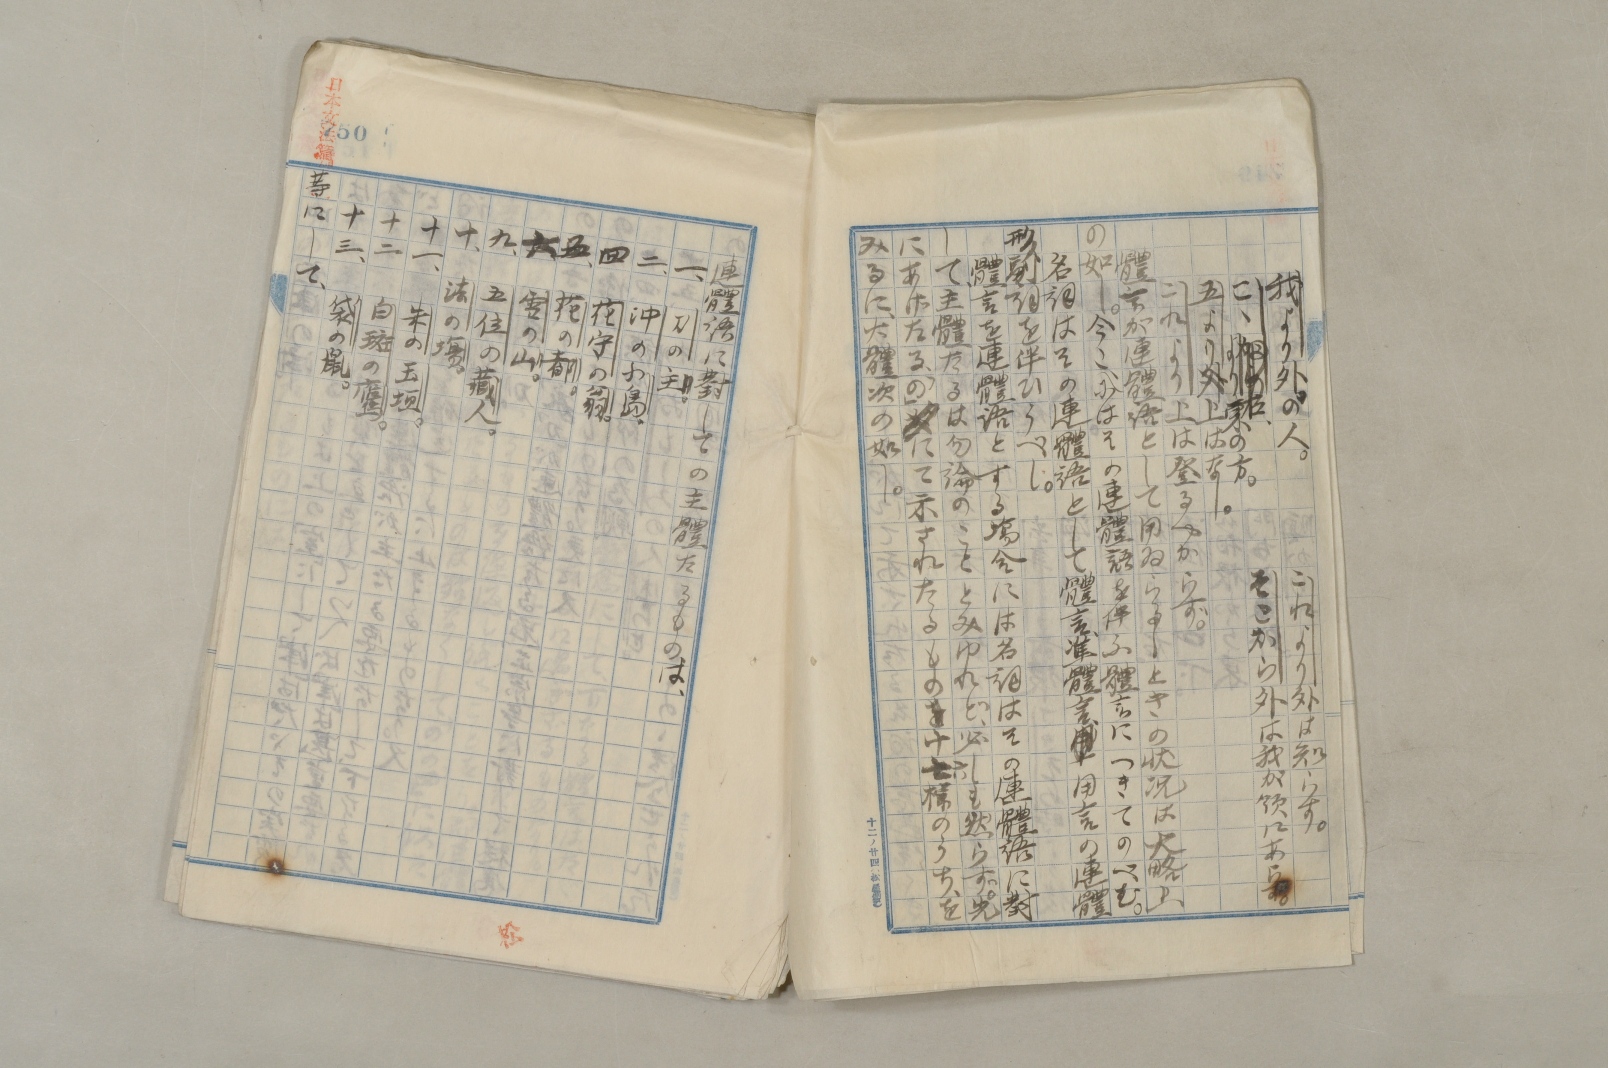 我より外の人。
これより外は知らず。
こゝより東の方。
そこから外は我が領にあらず。
五より外上はなし。
これより上は登るべからず。
體言が連體語として用ゐらるゝときの状況は大略上
の如し。今こゝにはその連體語を伴ふ體言につきてのべむ。
名詞はその連體語として體言、準體言、用言の連體
形、副詞を伴ひうべし。
體言を連體語とする場合には名詞はその連體語に對
して主體たるは勿論のことゝみゆれど、必しも然らず。先
にあげたる「の」にて示されたるものを十七様のうちを
みるに、大體次の如し。
十二ノ廿四
日本文法論
750
の連體語に對しての主體たるものは、
一、刀の主。
二、沖の小島。
四 花守の翁。
五、花の都。
六 雪の山。
九、五位の藏人。
十、法の場。
十一、朱の玉垣。
十二 白斑の鷹。
十三、袋の鼠。
等にして、